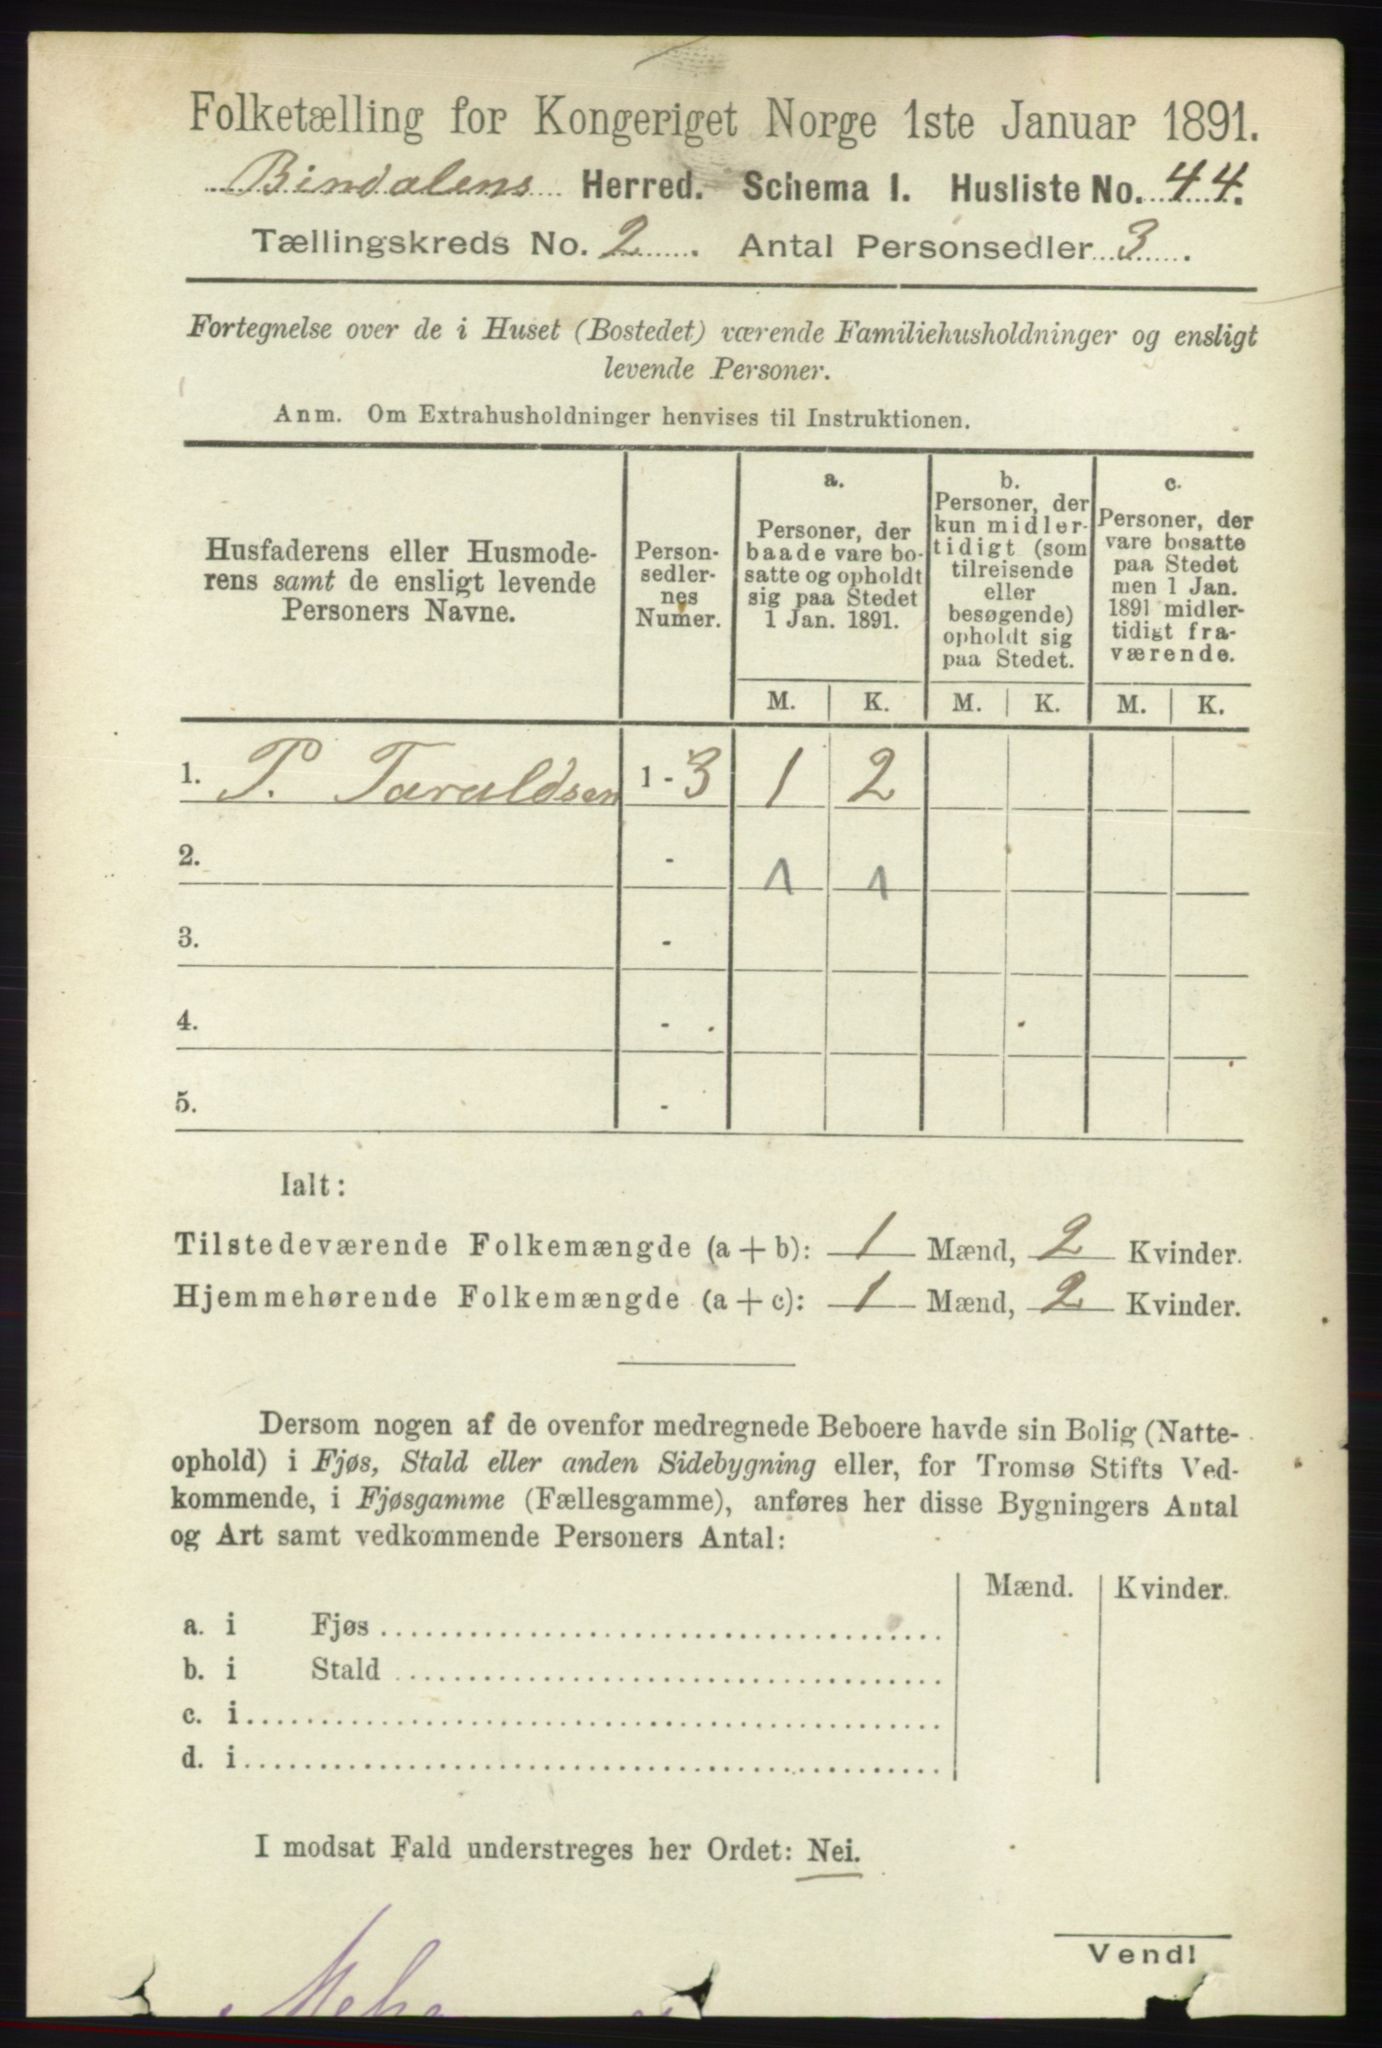 Folketælling for Kongeriget Norge 1ste Januar 1891.
Bindalens Herred. Schema I. Husliste No. 44.
Tællingskreds No. 2. Antal Personsedler 3.
Fortegnelse over de i Huset (Bostedet) værende Familiehusholdninger og ensligt
levende Personer.
Anm. Om Extrahusholdninger henvises til Instruktionen.
Husfaderens eller Husmode-
rens samt de ensligt levende
Personers Navne.
Person-
sedler-
nes
Numer.
a.
Personer, der
baade vare bo-
satte og opholdt
sig paa Stedet
1 Jan. 1891.
b.
Personer, der
kun midler-
tidigt (som
tilreisende
eller
besøgende)
opholdt sig
paa Stedet.
c.
Personer, der
vare bosatte
paa Stedet
men 1 Jan.
1891 midler-
tidigt fra-
værende.
M. K. M. K. M. K.
1. P. Taraldsen 1 - 3 1 2
2. - 1 1
3. -
4. -
5. -
Ialt:
Tilstedeværende Folkemængde (a + b): 1 Mænd, 2 Kvinder.
Hjemmehørende Folkemængde (a + c): 1 Mænd, 2 Kvinder.
Dersom nogen af de ovenfor medregnede Beboere havde sin Bolig (Natte-
ophold) i Fjøs, Stald eller anden Sidebygning eller, for Tromsø Stifts Ved-
kommende, i Fjøsgamme (Fællesgamme), anføres her disse Bygningers Antal
og Art samt vedkommende Personers Antal:
Mænd. Kvinder.
a. i Fjøs
b. i Stald
c. i
d. i
I modsat Fald understreges her Ordet: Nei.
Vend!